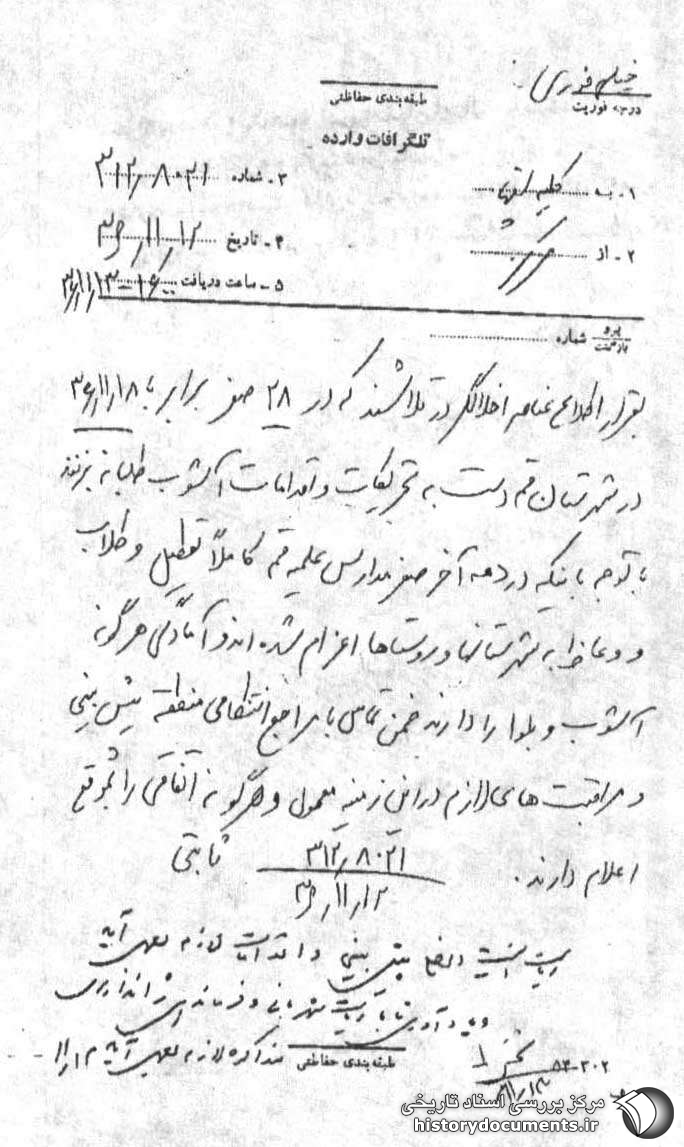 خیلی فوری
درجه فوریت
طبقه‌بندی حفاظتی
تلگرافات وارده
۱ - به کلیه
۳ - شماره ۳۱۲/۸۰۲۱
۲ - از مرکز
۴ - تاریخ ۳۶/۱۱/۱۲
۵ - ساعت دریافت
پیرو
بازگشت
شماره
بقرار اطلاع عناصر اخلالگر در تلاشند که در ۲۸ صفر برابر با ۳۶/۱۱/۱۸
در شهرستان قم دست به تحریکات و اقدامات آشوب طلبانه بزنند
با توجه باینکه در دهه آخر صفر مدارس علمیه قم کاملاً تعطیل و طلاب
و وعاظ به شهرستانها و روستاها اعزام شده اند و آمادگی هرگونه
آشوب و بلوا را دارند ضمن تماس با مراجع انتظامی منطقه پیش بینی
و مراقبت های لازم در این زمینه معمول و هرگونه اتفاقی را بموقع
اعلام دارند.
۳۱۲/۸۰۲۱
ثابتی
۳۶/۱۱/۱۲
پیش بینی و اقدامات لازم بعمل آید
شهربانی و فرماندهی ژاندارمری
مذاکره لازم بعمل آید
طبقه‌بندی حفاظتی
۵۳-۲۰۲
مرکز بررسی اسناد تاریخی
historydocuments.ir